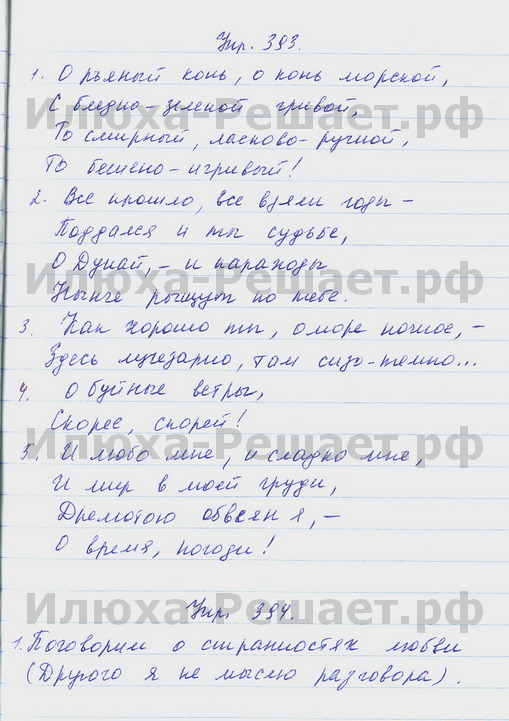 Упр. 393.
1. О рьяный конь, о конь морской,
С бледно-зеленой гривой,
То смирный, ласково-ручной,
То бешено-игривый!
2. Все прошло, все взяли годы –
Поддался и ты судьбе,
О Дунай, – и пароходы
Нынче рыщут по тебе.
3. Как хорошо ты, о море ночное, –
Здесь лучезарно, там сизо-темно...
4. О буйные ветры,
Скорее, скорей!
5. И любо мне, и сладко мне,
И мир в моей груди,
Дремотою обвеян я, –
О время, погоди!
Упр. 394.
1. Поговорим о странностях любви
(Другого я не мыслю разговора).
Илюха-Решает.рф
Илюха-Решает.рф
Илюха-Решает.рф
Илюха-Решает.рф